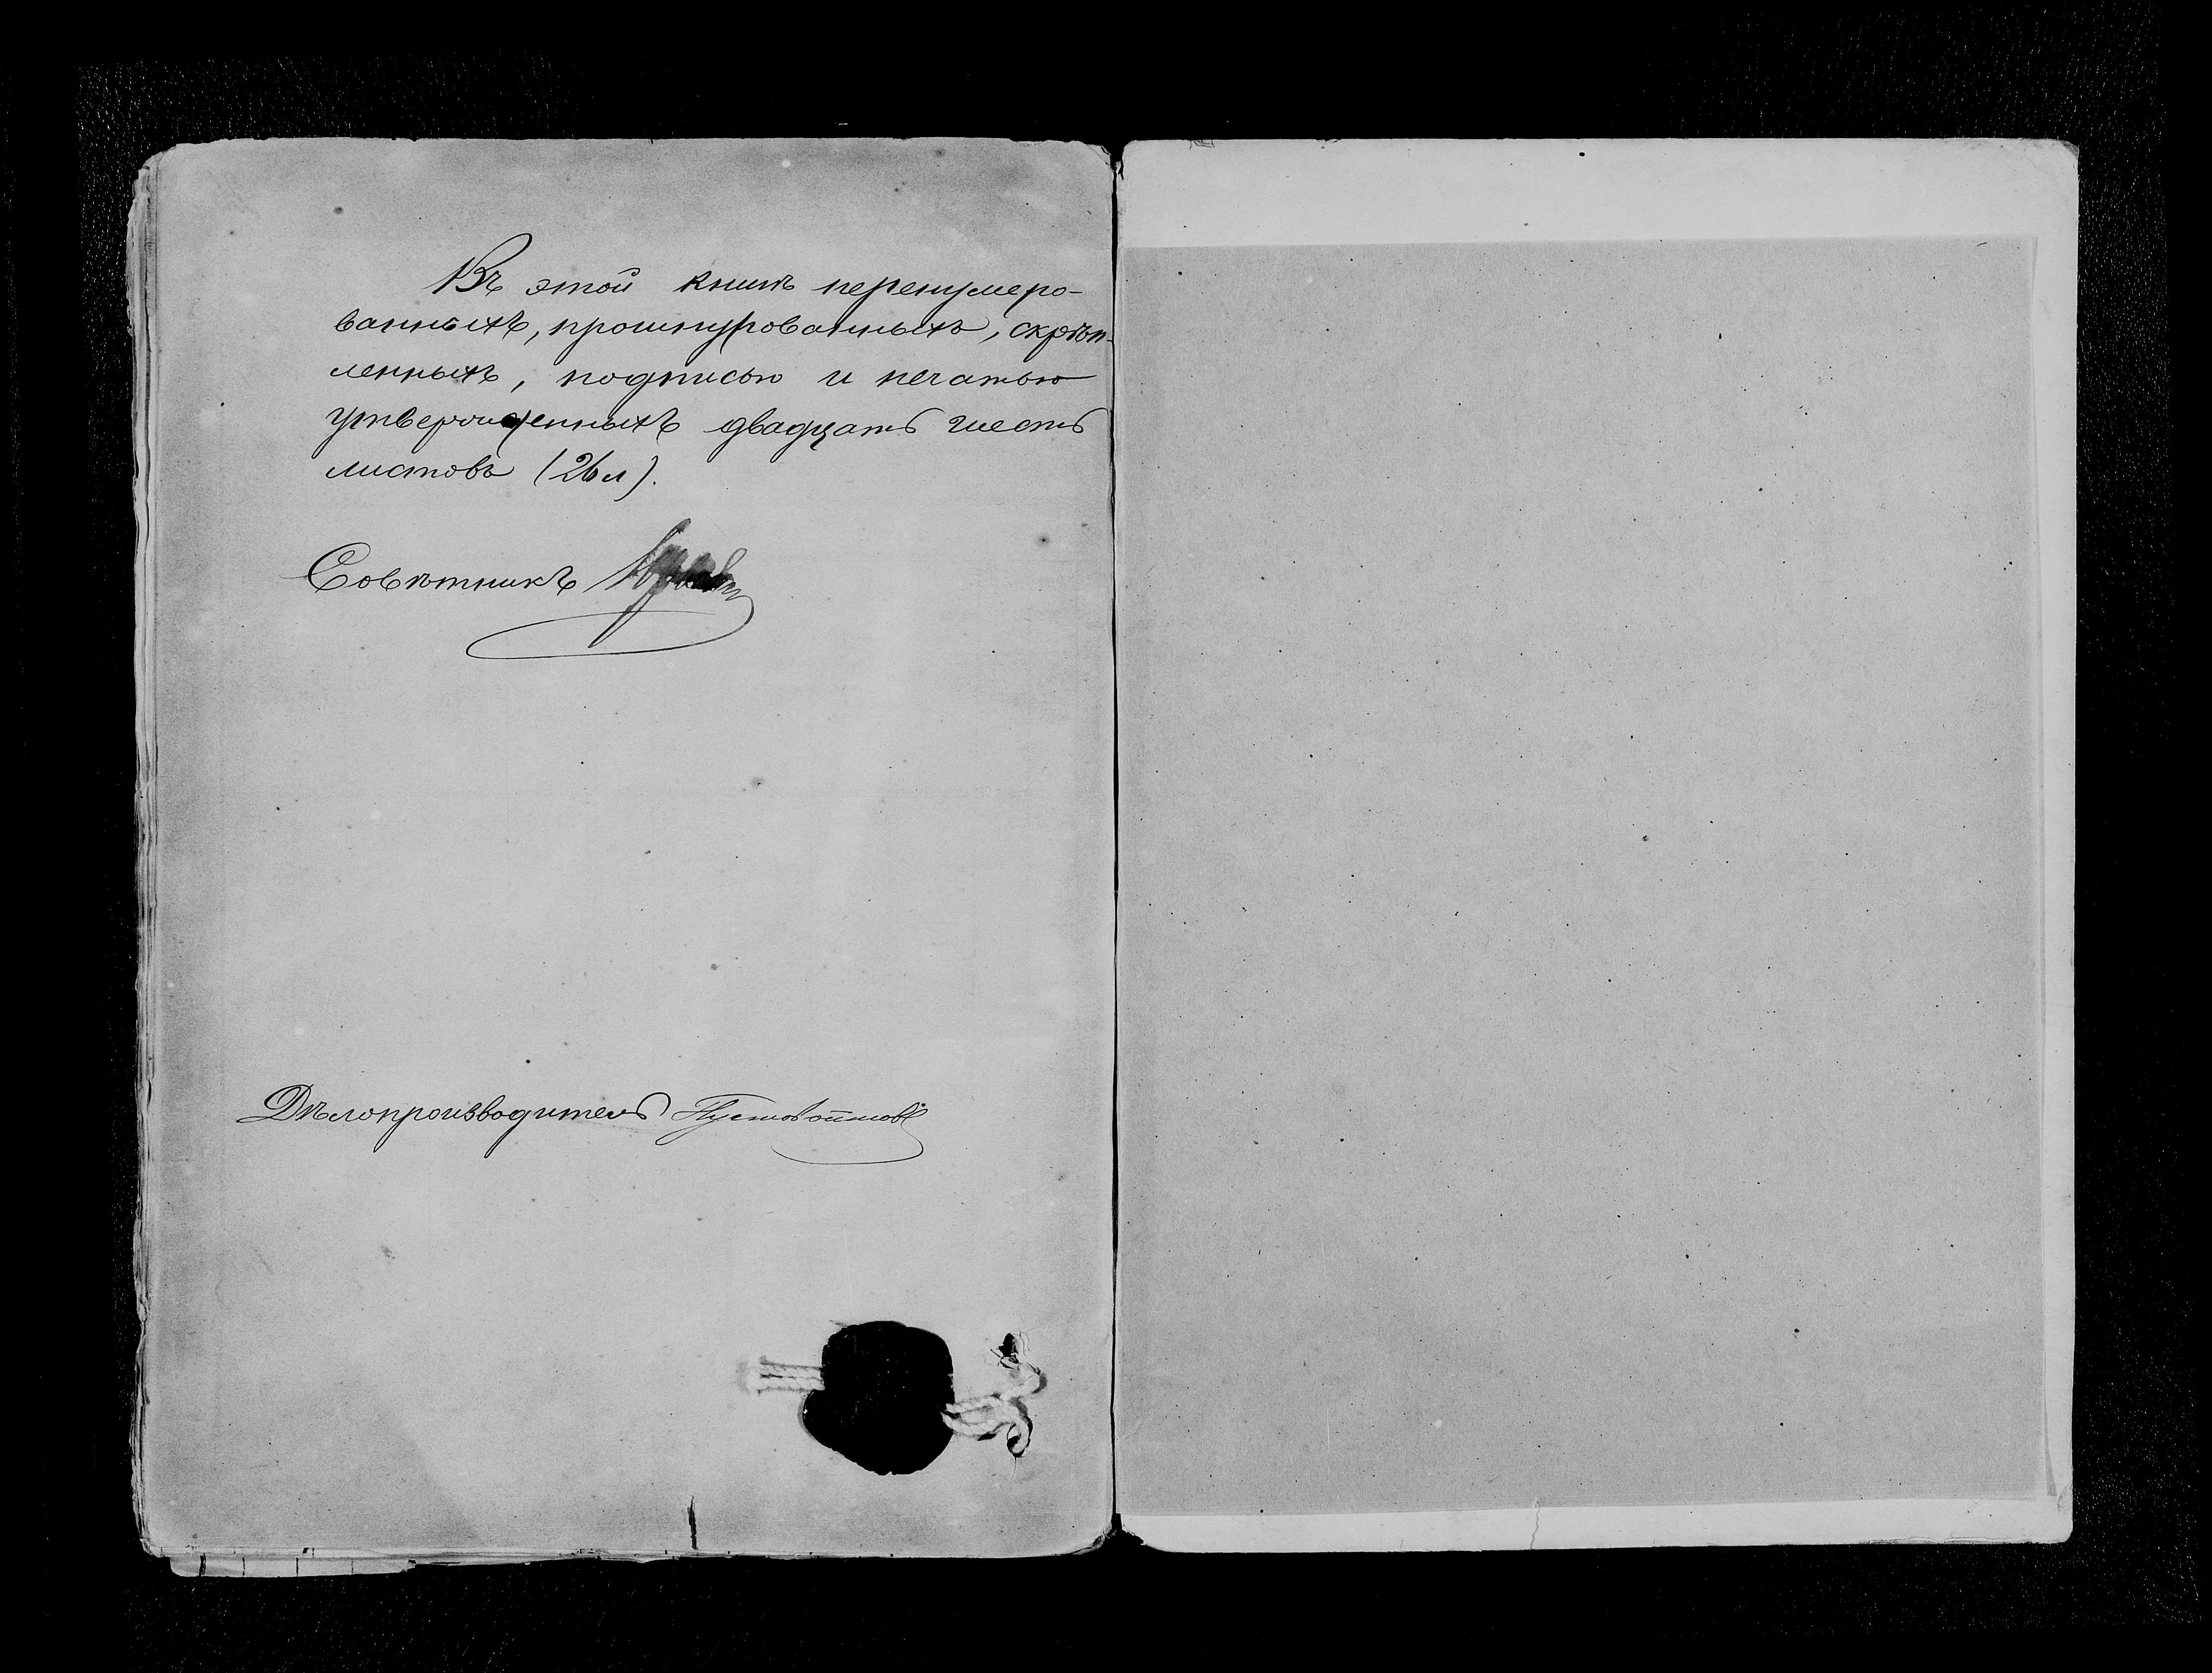 Въ этой книгѣ перенумеро-
ванныхъ, прошнурованныхъ, скрѣп-
ленныхъ, подписью и печатью
утвержденныхъ двадцать шесть
листовъ (26 л).
Совѣтникъ
Дѣлопроизводитель Пустовойтовъ